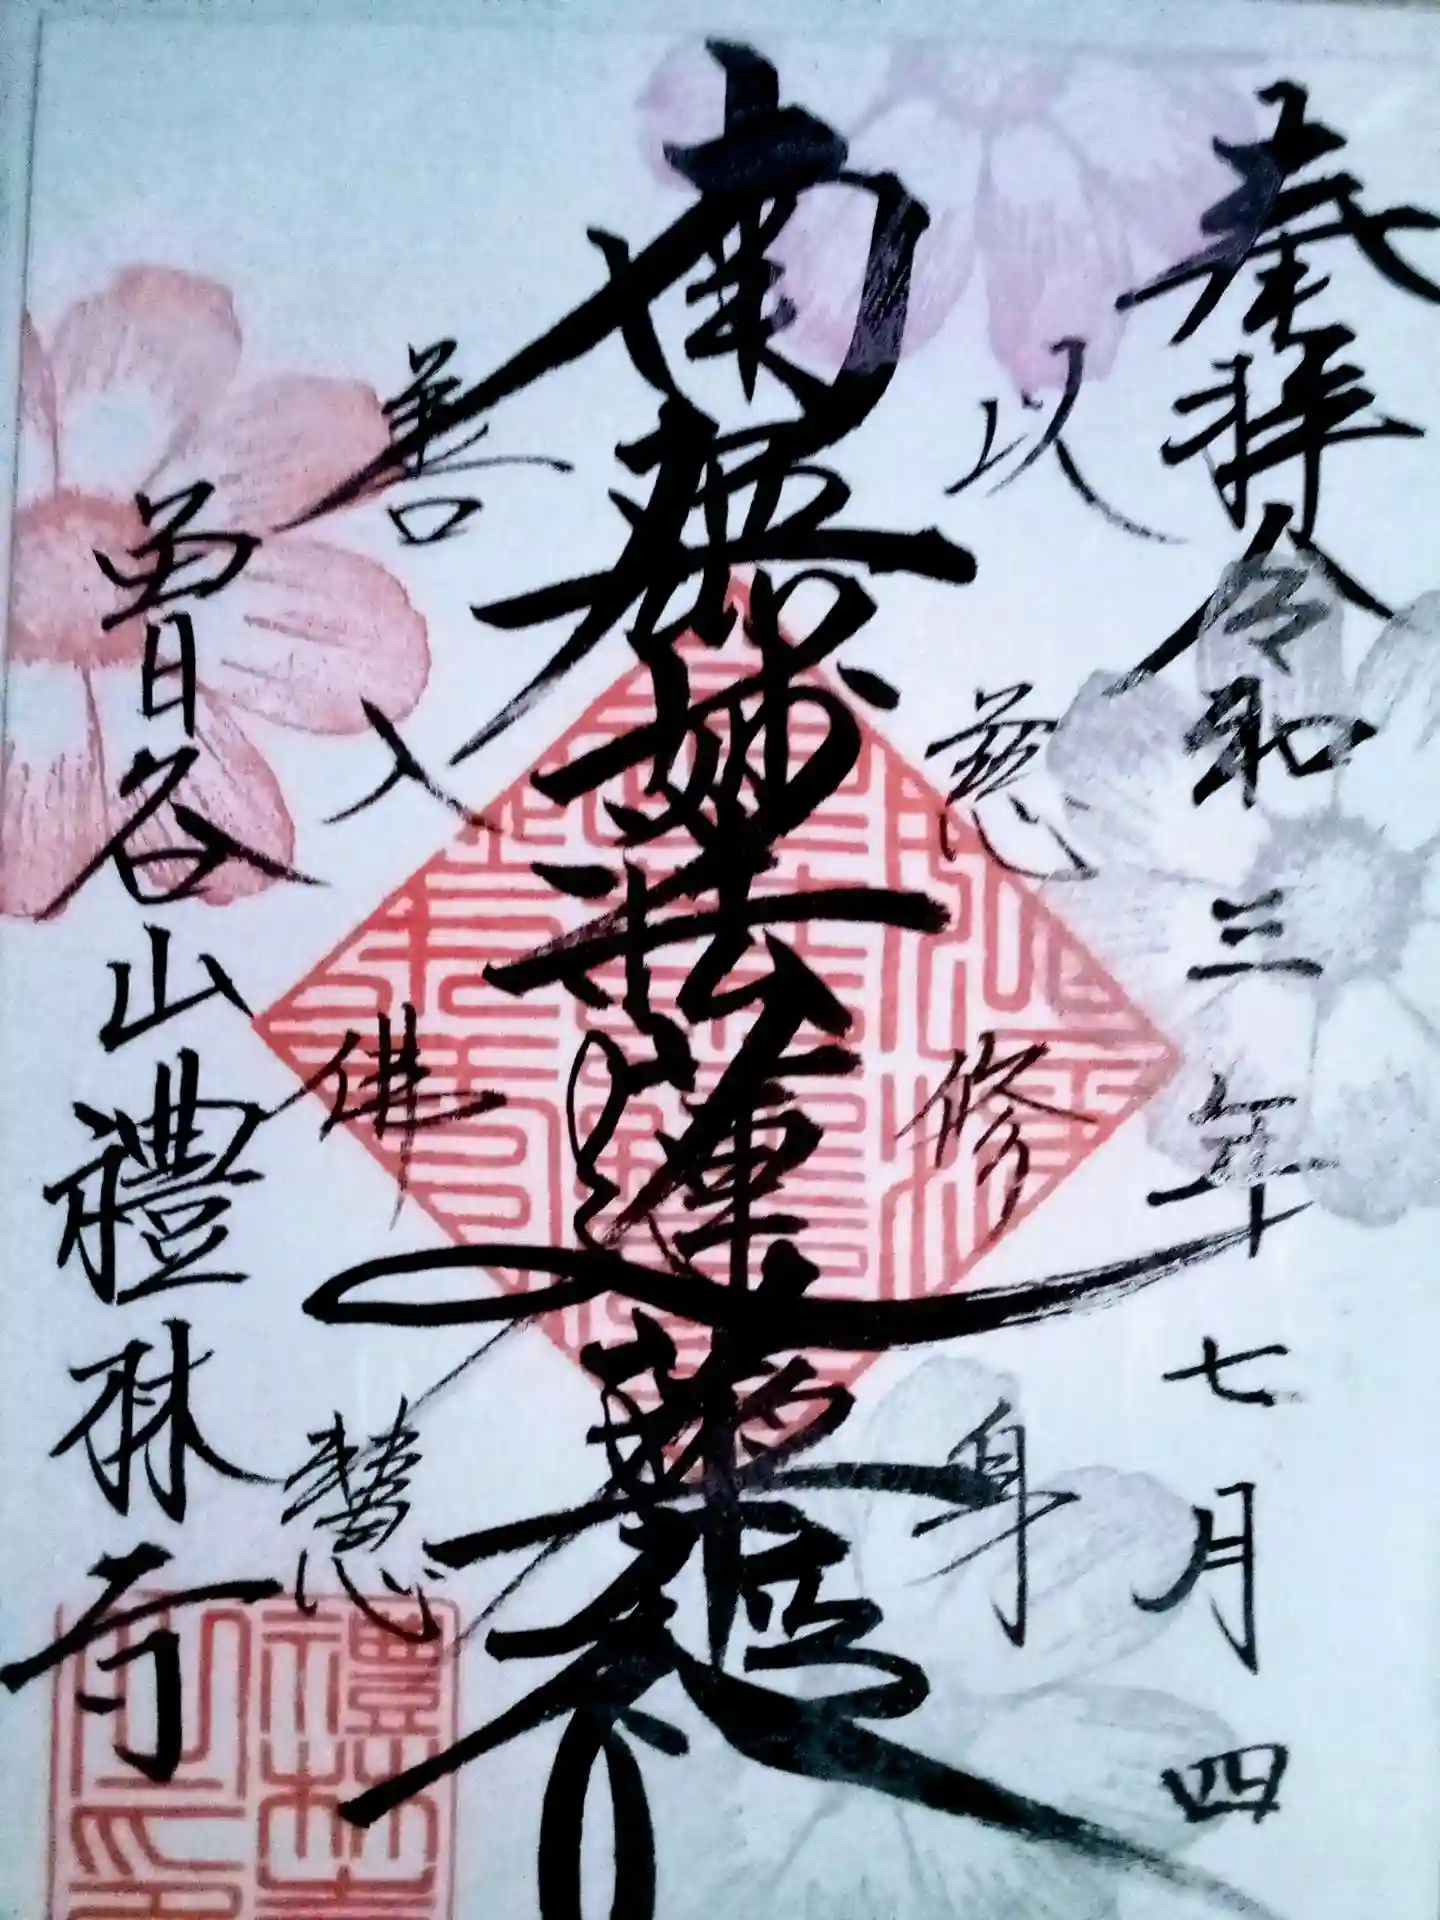 奉拝令和三年七月四
以慈修身
南無妙法蓮華経
善入佛慧
曽谷山禮林寺